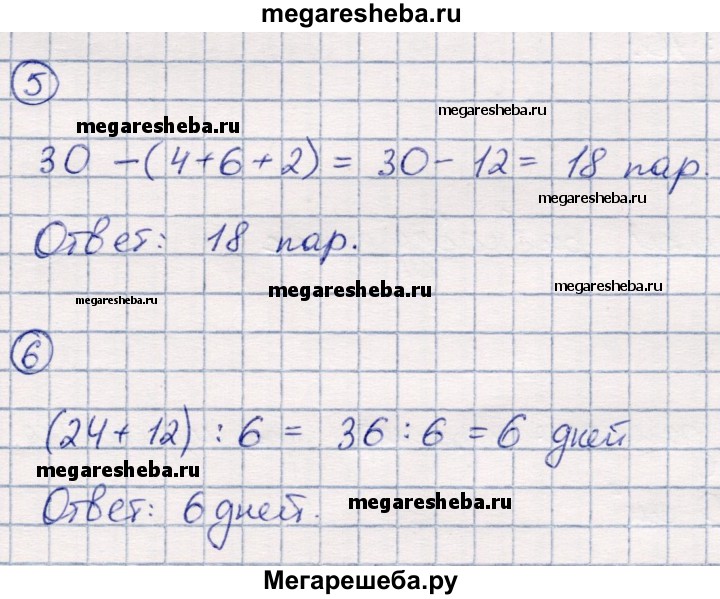 megaresheba.ru
5
megaresheba.ru
megaresheba.ru
30 - (4+6+2) = 30 - 12 = 18 пар.
megaresheba.ru
Ответ: 18 пар.
megaresheba.ru
megaresheba.ru
megaresheba.ru
6
(24 + 12) : 6 = 36 : 6 = 6 дней
megaresheba.ru
Ответ: 6 дней.
megaresheba.ru
Мегарешеба.ру